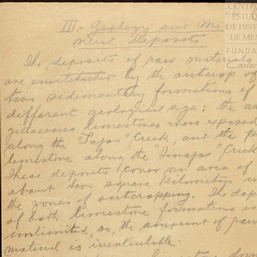 III - Geology and Mi-
neral Deposits
The deposits of raw materials
are constituted by the outcrop of
two sedimentary formations of
different geological age: the ar-
gillaceous limestones were exposed
along the "Tapas" Creek, and the p
limestone along the "Creek
These deposits cover an area of
about two square kilometers in
the zones of outcropping. The dep
of both limestone formations is
unlimited, so, the amount of raw
material is incalculable.
CENTR
ESTUD
DE HIST
DE ME
FUNDA